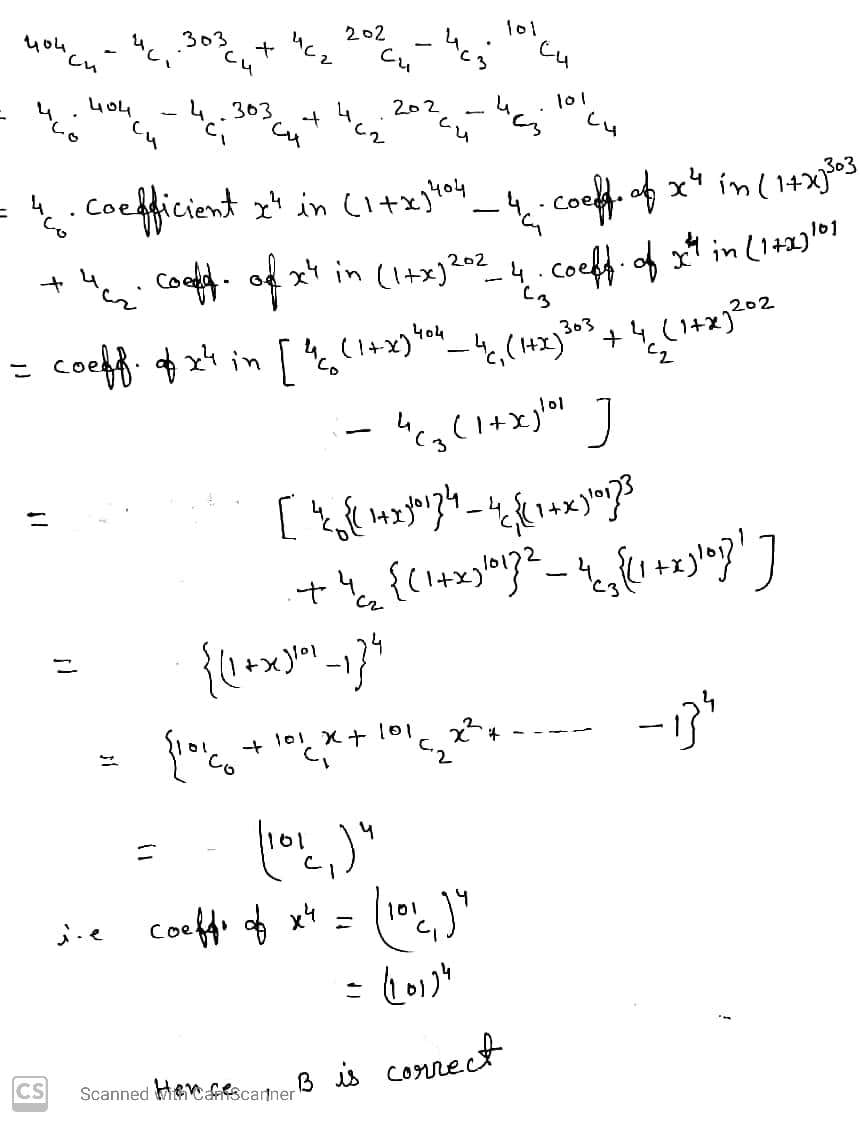 ⁴⁰⁴C₄ - ⁴C₁ . ³⁰³C₄ + ⁴C₂ ²⁰²C₄ - ⁴C₃ . ¹⁰¹C₄
= ⁴C₀ . ⁴⁰⁴C₄ - ⁴C₁ . ³⁰³C₄ + ⁴C₂ . ²⁰²C₄ - ⁴C₃ . ¹⁰¹C₄
= ⁴C₀ . coefficient x⁴ in (1+x)⁴⁰⁴ - ⁴C₁ . coeff. of x⁴ in (1+x)³⁰³
+ ⁴C₂ . coeff. of x⁴ in (1+x)²⁰² - ⁴C₃ . coeff. of x⁴ in (1+x)¹⁰¹
= coeff. of x⁴ in [ ⁴C₀ (1+x)⁴⁰⁴ - ⁴C₁ (1+x)³⁰³ + ⁴C₂ (1+x)²⁰²
- ⁴C₃ (1+x)¹⁰¹ ]
= [ ⁴C₀ {(1+x)¹⁰¹}⁴ - ⁴C₁ {(1+x)¹⁰¹}³
+ ⁴C₂ {(1+x)¹⁰¹}² - ⁴C₃ {(1+x)¹⁰¹}¹ ]
= {(1+x)¹⁰¹ -1}⁴
= {¹⁰¹C₀ + ¹⁰¹C₁ x + ¹⁰¹C₂ x² + ----- -1}⁴
= (¹⁰¹C₁)⁴
i.e coeff. of x⁴ = (¹⁰¹C₁)⁴
= (101)⁴
Hence, B is correct
CS Scanned with CamScanner